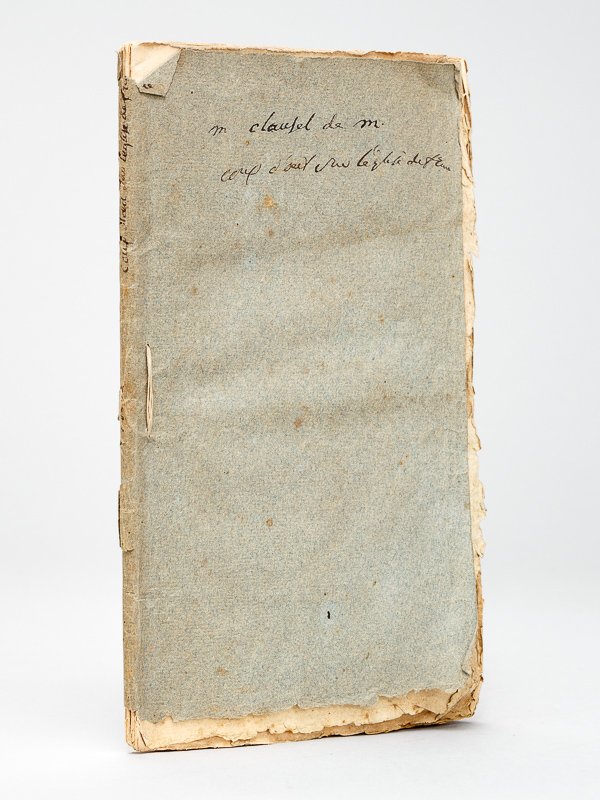 m clausel de m.
coup d'oeil sur l'église de france
coup d'oeil sur l'église de fr